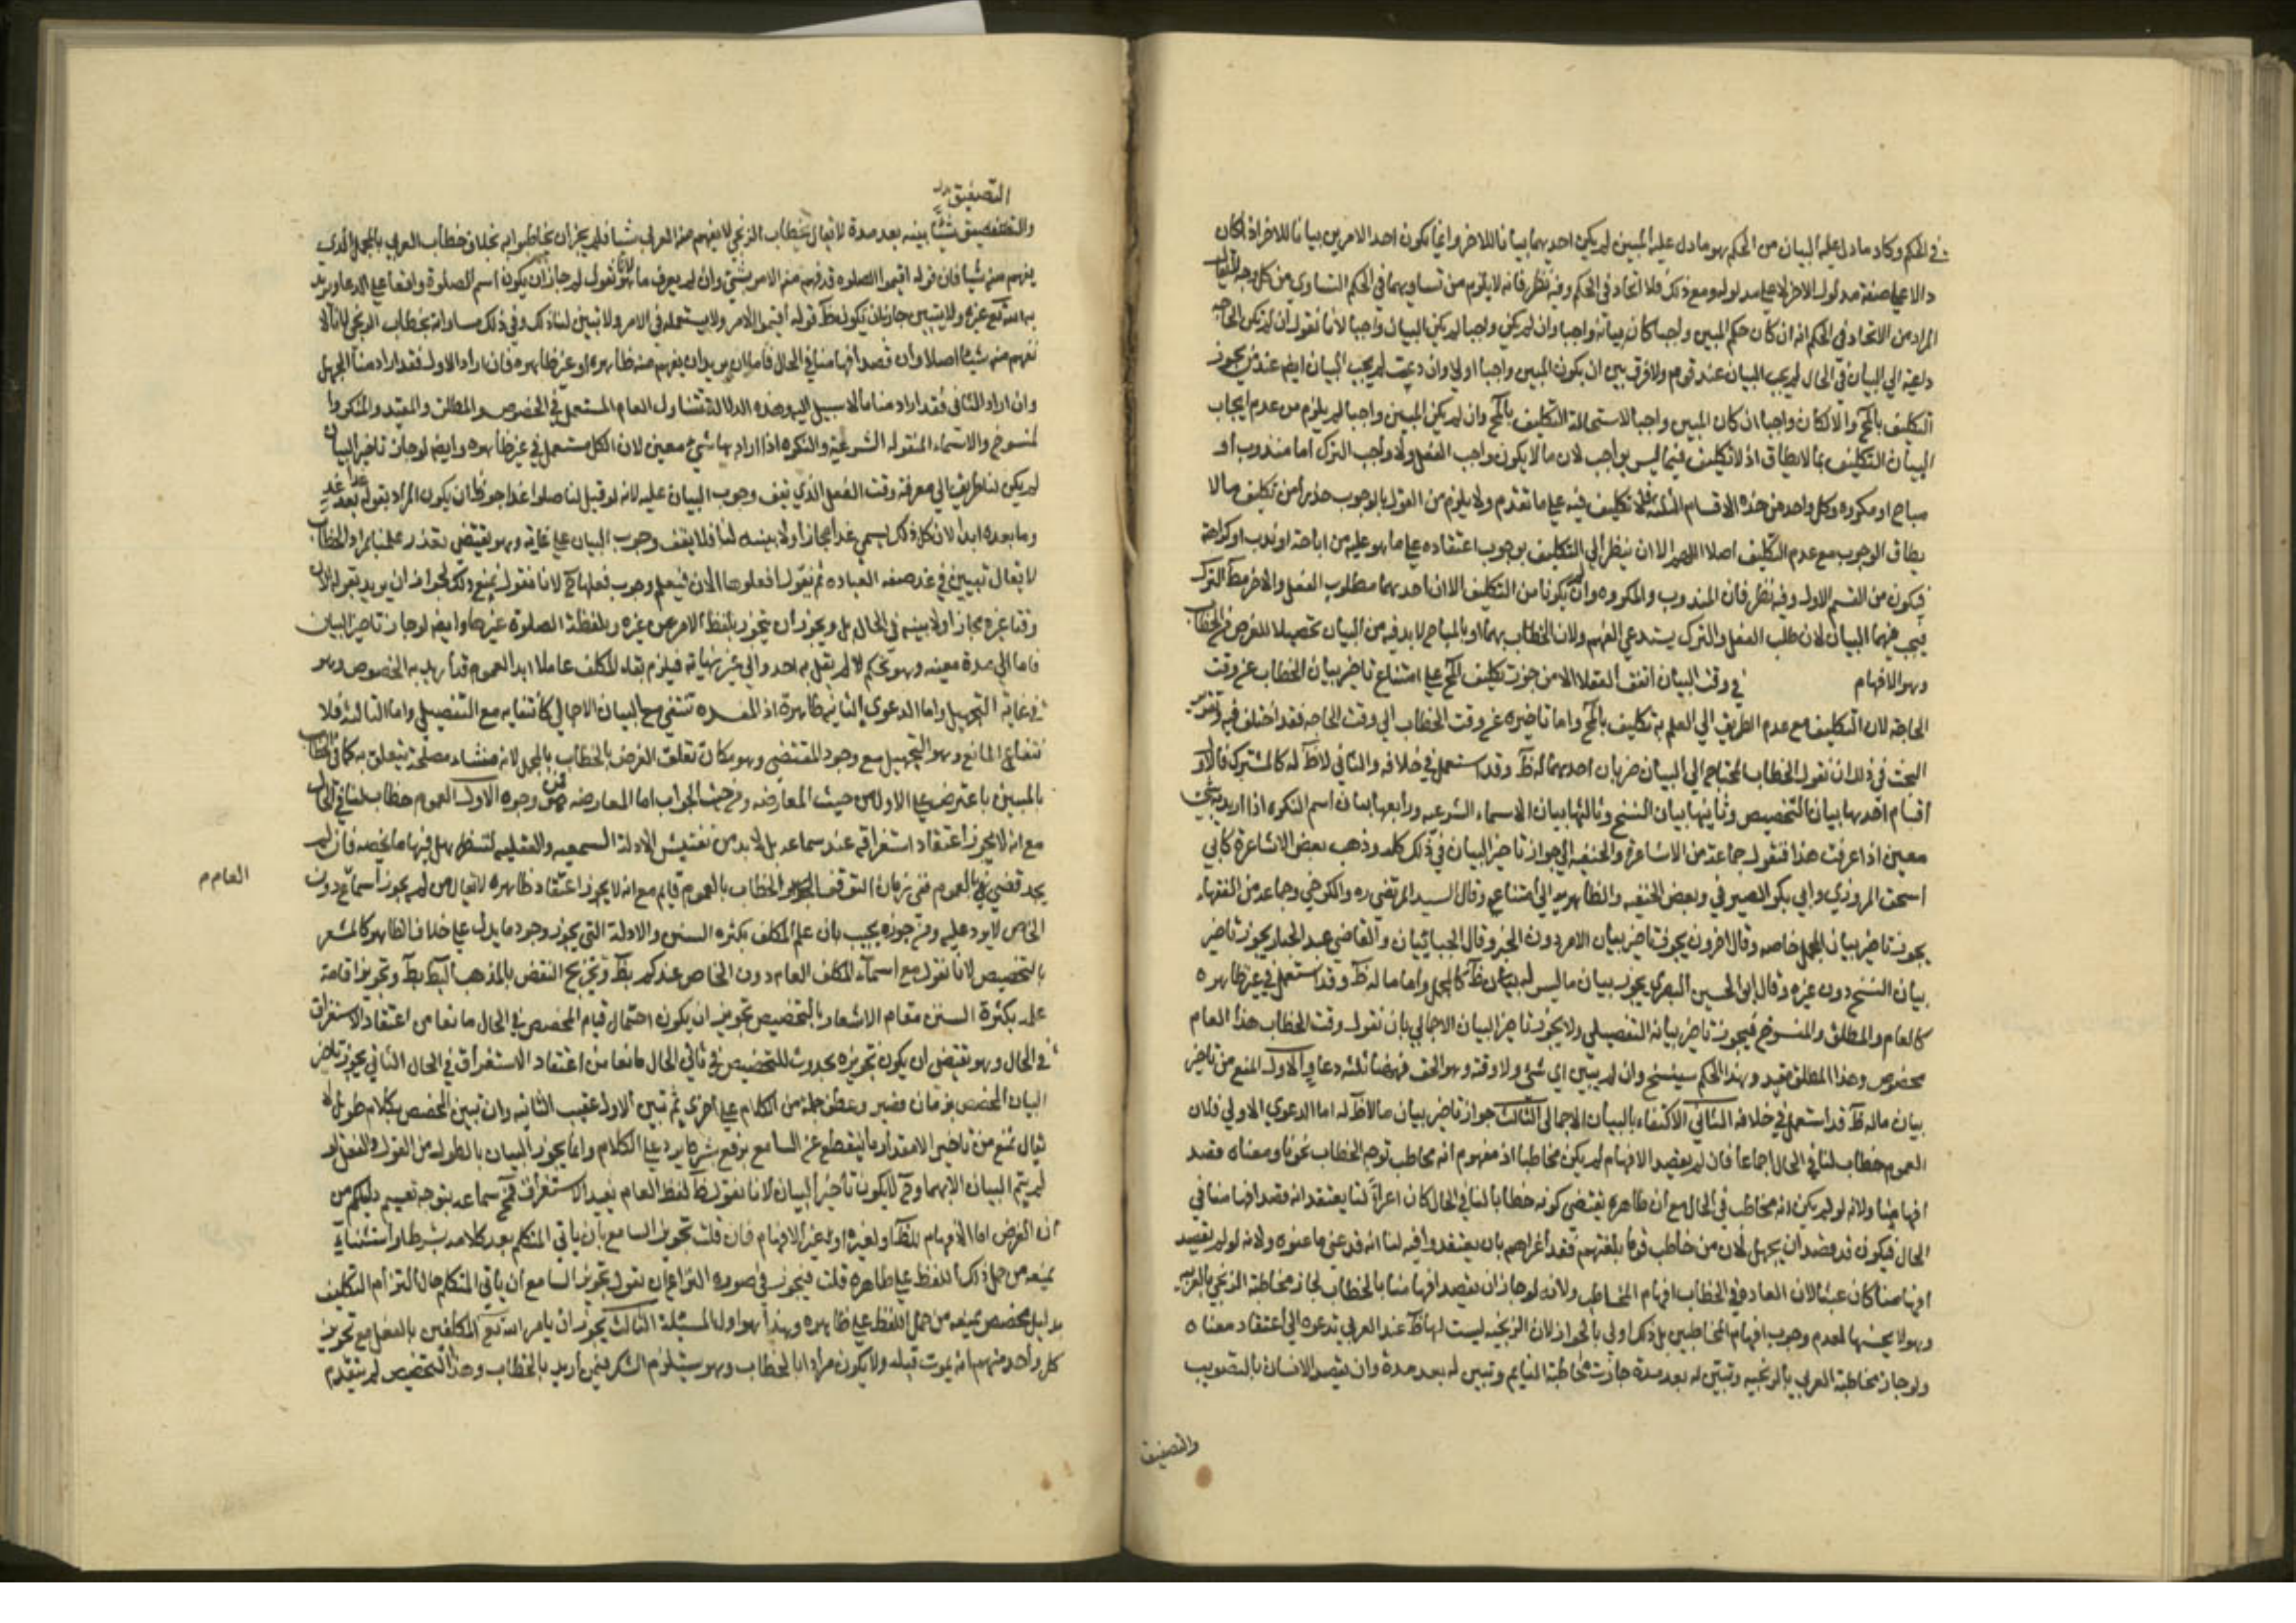 في الحكم وكاد ما دل عليه البيان من الحكم هو ما دل عليه المبين لم يكن احديهما بيانا للاخر وانما يكون احد الامرين بيانا للاخر اذا كان
دالا على صفة مدلول الاخر لا على مدلوله ومع ذلك فلا اتحاد في الحكم وفيه نظر فانه لا يلزم من تساويهما في الحكم التساوي من كل وجه
المراد من الاتحاد في الحكم انه ان كان حكم المبين واجبا كان بيانه واجبا وان لم يكن واجبا لم يكن البيان واجبا لانا نقول ان لم يكن الحاجة
داعية الى البيان في الحال لم يجب البيان عند قوم ولا فرق بين ان يكون المبين واجبا او لا وان دعت لم يجب البيان ايض عند من يجوز
التكليف بالمح والا لكان واجبا ان كان المبين واجبا لاستحالة التكليف بالمح وان لم يكن المبين واجبا لم يلزم من عدم ايجاب
البيان التكليف بما لا يطاق اذ لا تكليف فيما ليس بواجب لان ما لا يكون واجب الفعل ولا واجب الترك اما مندوب او
مباح او مكروه وكل واحد من هذه الاقسام الثلثة فلا تكليف فيه على ما تقدم ولا يلزم من القول بالوجوب حذرا من تكليف ما لا
يطاق الوجوب مع عدم التكليف اصلا اللهم الا ان ينظر الى التكليف بوجوب اعتقاده على ما هو عليه من اباحة او ندب او كراهة
فيكون من القسم الاول وفيه نظر فان المندوب والمكروه وان لم يكونا من التكليف الا ان احدهما مطلوب الفعل والاخر مط الترك
فيجب فيهما البيان لان طلب الفعل والترك يستدعي الفهم ولان الخطاب بهما او بالمباح لا بد فيه من البيان تحصيلا للغرض من الخطاب
وهو الافهام في وقت البيان اتفق العقلا الا من جوز تكليف المح على امتناع تاخير بيان الخطاب عن وقت
الحاجة لان التكليف مع عدم الطريق الى العلم به تكليف بالمح واما تاخيره عن وقت الخطاب الى وقت الحاجة فقد اختلف فيه وتقرير
البحث في ذلك ان نقول الخطاب المحتاج الى البيان ضربان احدهما له ظ وقد استعمل في خلافه والثاني لا ظ له كالمشترك فالاول
اقسام احدها بيان التخصيص وثانيها بيان النسخ وثالثها بيان الاسماء الشرعيه ورابعها بيان اسم النكره اذا اريد به شئ
معين اذا عرفت هذا فنقول جماعة من الاشاعرة والحنفيه الى جواز تاخير البيان في ذلك كله وذهب بعض الاشاعرة كابي
اسحق المروزي وابي بكر الصيرفي وبعض الحنفيه والظاهرية الى امتناعه وقال السيد المرتضى ره والكرخي وجماعة من الفقهاء
يجوز تاخير بيان المجمل خاصه وقال اخرون يجوز تاخير بيان الامر دون الخبر وقال الجبائيان والقاضي عبد الجبار يجوز تاخير
بيان النسخ دون غيره وقال ابو الحسين البصري يجوز بيان ما ليس له ظ كالمجمل واما ما له ظ وقد استعمل في غير ظاهره
كالعام والمطلق والمنسوخ فيجوز تاخير بيانه التفصيلي ولا يجوز تاخير البيان الاجمالي بان نقول وقت الخطاب هذا العام
مخصوص وهذا المطلق مقيد وهذا الحكم سينسخ وان لم يبين اي شئ ولا وقته وهو الحق فههنا ثلثة دعاوٍ الاول المنع من تاخير
بيان ماله ظ قد استعمل في خلافه الثاني الاكتفاء بالبيان الاجمالي الثالث جواز تاخير بيان ما لا ظ له اما الدعوي الاولي فلان
العموم خطاب لنا في الحال اجماعا فان لم يقصد الافهام لم يكن مخاطبا اذ مفهوم انه مخاطب توجه الخطاب نحونا ومعناه قصد
افهامنا ولانه لو لم يكن انه مخاطب في الحال مع ان ظاهره يقتضي كونه خطابا لنا في الحال كان اغراءً لنا بان يعتقد انه قصد افهامنا في
الحال فيكون قد قصد ان يجهل لان من خاطب قوما بلغتهم فقد اغراهم بان يعتقدوا فيه لنا انه قد عنى ما عنوه ولانه لو لم يقصد
افهامنا كان عبثا لان العاده في الخطاب افهام المخاطب ولانه لو جاز ان لا يقصد افهامنا بالخطاب لجاز مخاطبة الزنجي بالعربيه
وهو لا يحسنها لعدم وجوب افهام المخاطبين بل ذلك اولي بالجواز لان الزنجيه ليست لها ظ عند العربي تدعوه الى اعتقاد معناه
ولو جاز مخاطبة العربي بالزنجيه وتبين له بعد مدة جازت مخاطبة النايم وتبين له بعد مدة وان يقصد الانسان بالتصويت
والتصفيق
التصفيق بدل
والتصفيق شيئا يبينه بعد مدة لا يقال خطاب الزنجي لا يفهم منه العربي شيا فلم يجز ان يخاطبوا به بخلاف خطاب العربي بالمجمل الذي
يفهم منه شيا فان قوله اقيموا الصلوه قد فهم منه الامر بشئ وان لم يعرف ما هو لانا نقول لو جاز ان يكون اسم الصلوة واقعا على الدعا ويريد
به الله تع غيره ولا يبين جاز ان يكون ظ قوله اقيموا للامر ولا يستعمله في الامر ولا تبين لنا ذلك وفي ذلك مساواته بخطاب الزنجي لانا لا
نفهم منه شيئا اصلا وان قصد افهامنا في الحال فاما ان يريد ان يفهم منه ظاهره او غير ظاهره فان اراد الاول فقد اراد منا الجهل
وان اراد الثاني فقد اراد منا ما لا سبيل اليه وهذه الدلالة تتناول العام المستعمل في الخصوص والمطلق والمقيد والمنكر وا
لمنسوخ والاسماء المنقوله الشرعية والنكره اذا اراد بها شيء معين لان الكل مستعمل في غير ظاهره وايض لو جاز تاخير البيان
لم يكن لنا طريق الى معرفة وقت الفعل الذي يقف وجوب البيان عليه لانه لو قيل لنا صلوا غدا جوزنا ان يكون المراد بقوله غدا بعد غد
وما بعده ابدا لان كل ذلك يسمى غدا مجازا ولا يبينه لنا فلا يقف وجوب البيان على غايه وهو يقتضي تعذر علمنا بمراد الخطاب
لا يقال تبيين في غد صفه العباده ثم يقول افعلوها الان فيعلم وجوب فعلها ح لانا نقول نمنع ذلك لجواز ان يريد بقوله الان
وقتا غيره مجازا ولا يبينه في الحال بل ويجوز ان يتجوز بلفظ الامر عن غيره وبلفظة الصلوة غيرها وايضا لو جاز تاخير البيان
فاما الى مدة معينه وهو تحكم لم يقل به احد والى غير نهاية فيلزم بقاء المكلف عاملا ابدا بعموم قد اريد به الخصوص وهو
في غاية التجهيل واما الدعوي الثانيه فظاهرة اذ المفسده تنتفي مع البيان الاجمالي كانتفايه مع التفصيلي واما الثالثة فلا
نتفاء المانع وهو التجهيل مع وجود المقتضى وهو مكان تعلق الغرض بالخطاب بالمجمل لانه منشاء مصلحة يتعلق به كما في الخطاب
بالمبين باعتراض على الاول من حيث المعارضه ومن حيث الجواب اما المعارضه فمن وجوه الاول العموم خطاب لنا في الحال
مع انه لا يجوز اعتقاد استغراقه عند سماعه بل لا بد من تفتيش الادلة السمعيه والعقليه لننظر هل فيها ما يخصه فان لم
يجد قضي بالعموم ففي زمان التوقف الخطاب بالعموم قايم مع انه لا يجوز اعتقاد ظاهره لا يقال من لم يجوز اسماع دون
العام م
الخاص لا يرد عليه ومن جوزه يجيب بان علم المكلف بكثره السنن والادلة التي يجوز وجود ما يدل على خلاف الظاهر كالمشعر
بالتخصيص لانا نقول مع اسماء المكلف العام دون الخاص عندكم بط وتخريج النقض بالمذهب البط بط وتجويز اقامة
علمه بكثرة السنن مقام الاشعار بالتخصيص تجويز ان يكون احتمال قيام المخصص في الحال مانعا من اعتقاد الاستغراق
في الحال وهو يقتضي ان يكون تجويزه بحدوث للتخصيص في ثاني الحال مانعا من اعتقاد الاستغراق في الحال الثاني يجوز تاخر
البيان المخصص بزمان قصير وعطف جملة من الكلام على اخرى ثم تبين الاولى عقيب الثانيه وان تبين المخصص بكلام طويل لا
يقال نمنع من تاخير الا مقدار ما ينقطع عن السامع توقع شرط يرد على الكلام وانما يجوز البيان بالطول من القول والفعل لو
لم يتم البيان الا بهما وح لا يكون تاخير البيان لانا نقول ظ لفظ العام يفيد الاستغراق فح سماعه يتوجه تقسيم دليلكم من
ان الغرض اما الافهام للظ او لغيره او لغير الافهام فان قلت تجويز السامع بان ياتي المتكلم بعد كلامه بشرط او استثناء
يمنعه من حمل ذلك اللفظ على ظاهره قلت فيجوز في صورة النزاع ان نقول تجويز السامع ان ياتي المتكلم حال التزام التكليف
بدليل مخصص يمنعه من حمل اللفظ على ظاهره وهذا هو اول المسئلة الثالث يجوز ان يامر الله تع المكلفين بالفعل مع تجويز
كل واحد منهم انه يموت قبله ولا يكون مرادا بالخطاب وهو يستلزم الشك فيمن اريد بالخطاب وهذا التخصيص لم يتقدم